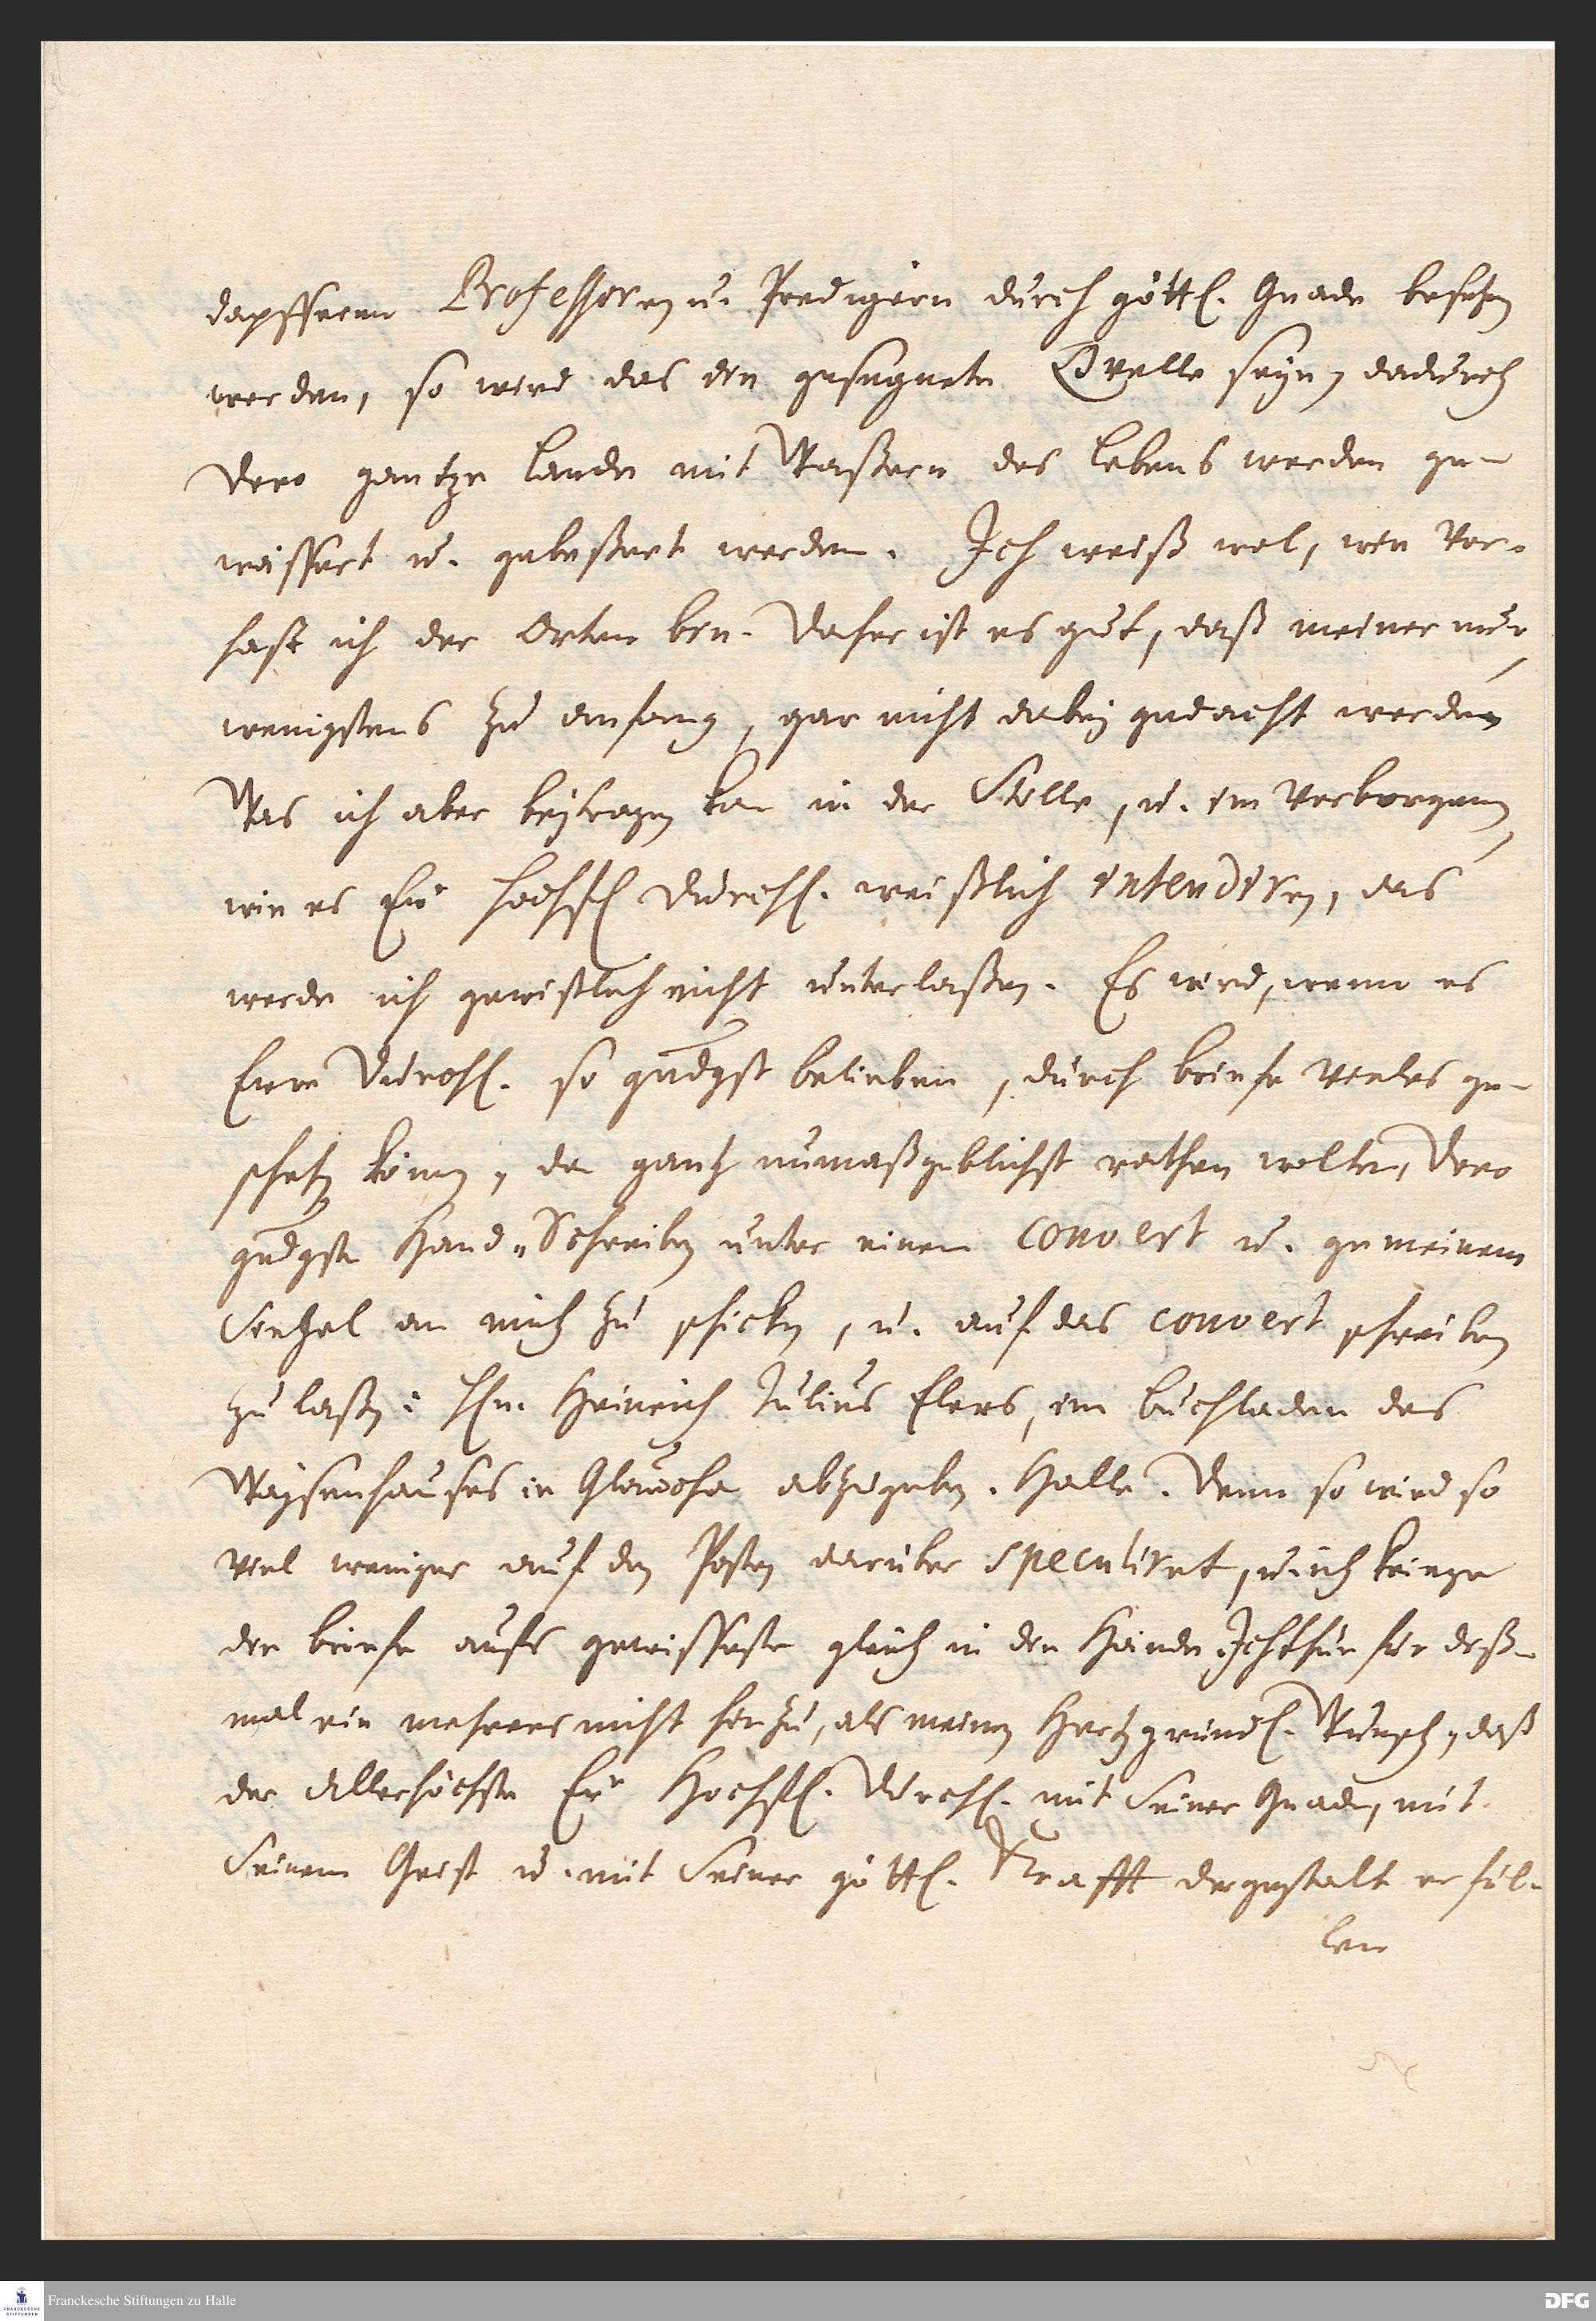 dapfferen Professoren u. Predigern durch göttl. Gnade besetzen
werden, so wird das die gesegnete Qvelle seyn, dadurch
Dero gantze Lande mit Waßern des Lebens werden ge-
wässert u. gebeßert werden. Ich weiß wol, wie ver-
hast ich der Orten bin. Daher ist es gut, daß meiner nur,
wenigstens zu anfang, gar nicht dabey gedacht werde.
Was ich aber beytragen kan in der Stille, u. im verborgenen,
wie es Eu. Hochfl. Durchl. weißlich intendiren, das
werde ich gewißlich nicht unterlaßen. Es wird, wenn es
Eure Durchl. so gndgst belieben, durch briefe vieles ge-
schehen können, da gantz unmaßgeblichst rathen wolte, Dero
gndgste Hand-Schreiben unter einem convert u. gemeinem
Siegel an mich zu schicken, u. auf das convert schreiben
zu laßen: Hn. Heinrich Julius Elers, im Buchladen des
Wäysenhauses in Glaucha abzugeben. Halle. Denn so wird so
viel weniger auf den Posten darüber speculiret, u. ich kriege
die briefe aufs gewisseste gleich in die Hände. Ich thue für dieß-
mal ein mehrers nicht hinzu, als meinen Hertzgründl. Wunsch, daß
der Allerhöchste Eu. Hochfl. Durchl. mit Seiner Gnade, mit
Seinem Geist u. mit Seiner göttl. Krafft dergestalt erfül-
len
Franckesche Stiftungen zu Halle
DFG